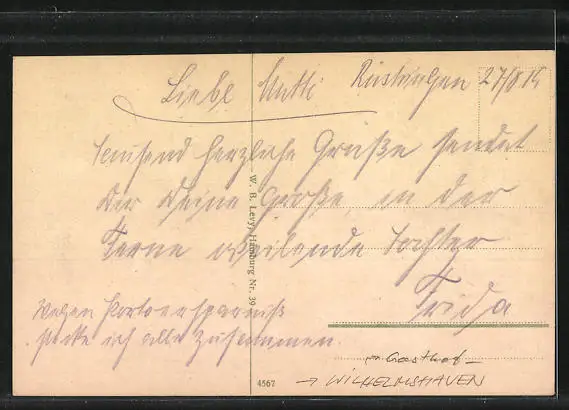 Liebe Mutti Rüstringen 27/8 19
Tausend herzliche Grüße sendet
Dir Deine Große, in der
Ferne weilende Tochter
Frida
Wegen Portoersparniß
stecke ich alle zusammen.
W. B. Levy, Hamburg Nr. 39
4567
Gasthof –
→ WILHELMSHAVEN